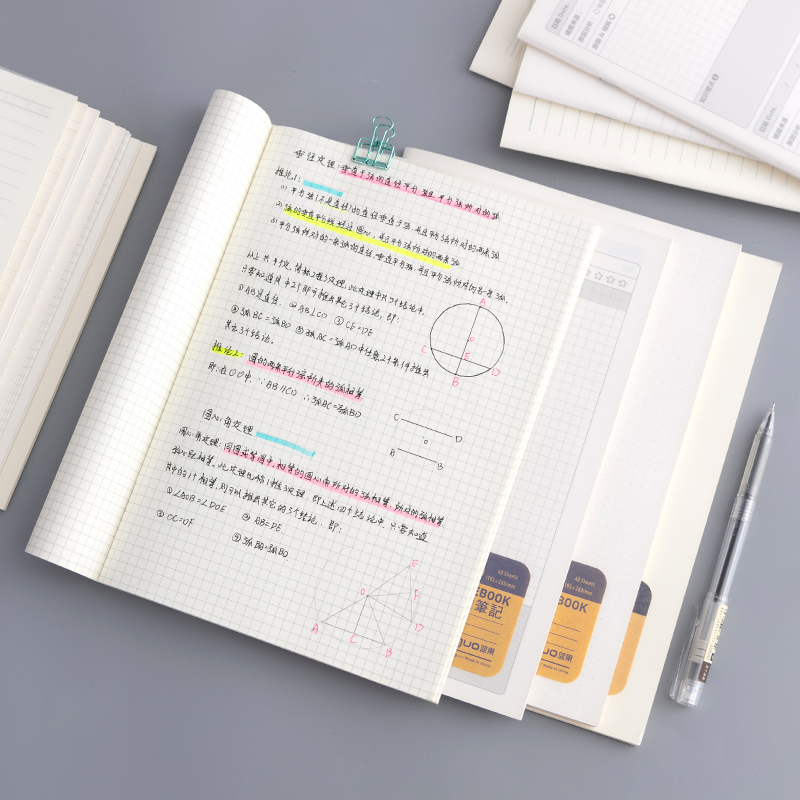 垂径定理:垂直于弦的直径平分弦且平分弦所对的弧
推论1:
1) 平分弦(不是直径)的直径垂直于弦,并且平分弦所对的两条弧
2) 弦的垂直平分线经过圆心,并且平分弦所对的两条弧
3) 平分弦所对的一条弧的直径,垂直平分弦,并且平分弦所对的另一条弧。
以上共4个定理,简称2推3定理,此定理中共5个结论中,
只要知道其中2个即可推出其它3个结论,即:
①AB是直径 ②AB⊥CD ③CE=DE
④弧BC=弧BD ⑤弧AC=弧AD中任意2个条件推出
其它3个结论。
推论2:圆的两条平行弦所夹的弧相等
即:在⊙O中,∵AB∥CD ∴弧AC=弧BD
圆心角定理
圆心角定理:同圆或等圆中,相等的圆心角所对的弦相等,所对的弧相等
弦心距相等。此定理也称1推3定理,即上述四个结论中,只要知道
其中的1个相等,则可以推出其它的3个结论,即:
①∠AOB=∠DOE ②AB=DE
③OC=OF ④弧BA=弧BD
A
O
C
E
D
B
C
D
O
A
B
E
O
F
A
C
B
D
48 Sheets
EBOOK
筆記
Made in china
48 Sheets
BOOK
日期 Date.
日期 Date.